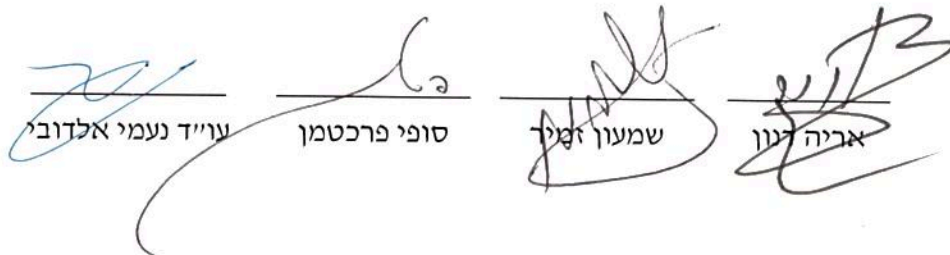 אריה דנון שמעון זמיר סופי פרכטמן עו״ד נעמי אלדובי